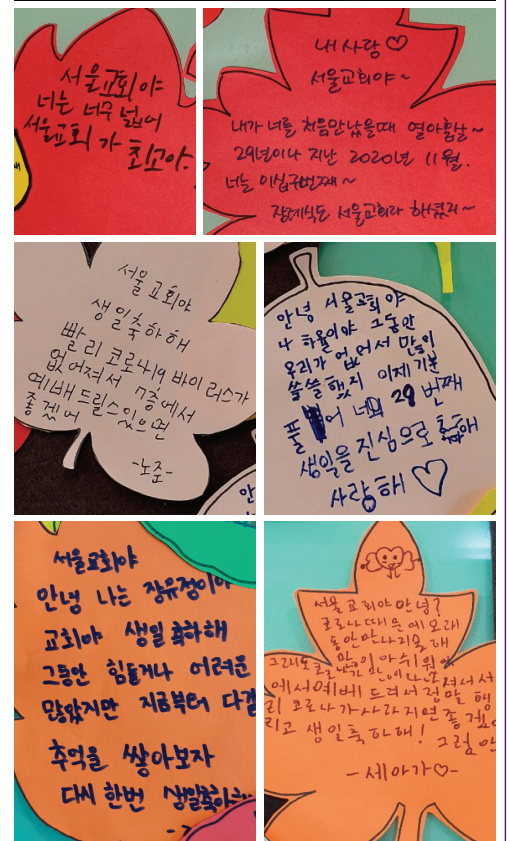 서울교회야
너는 너무 넓어
서울교회가 최고야.
내 사랑♡
서울교회야~
내가 너를 처음만났을때 열아홉살~
29년이나 지난 2020년 11월.
너는 이십구번째~
장례식도 서울교회라 하겠지~
서울교회야
생일축하해
빨리 코로나19 바이러스가
없어져서 7층에서
예배드릴수있으면
좋겠어
-노준-
안녕 서울교회야
나 하율이야 그동안
우리가 없어서 많이
쓸쓸했지 이제 기분
풀어 너의 29번째
생일을 진심으로 축하해
사랑해♡
안
서울교회야
안녕 나는 장유정이야
교회야 생일 축하해
그동안 힘들거나 어려운
많았지만 지금부터 다같
추억을 쌓아보자
다시 한번 생일축하해
서울교회야 안녕?
코로나때문에 오래
동안만나지못해
그래도 코로나
에서예배드려서정말 행
리 코로나가사라지면좋겠어
리고 생일축하해! 그럼 안
-세아가♡-